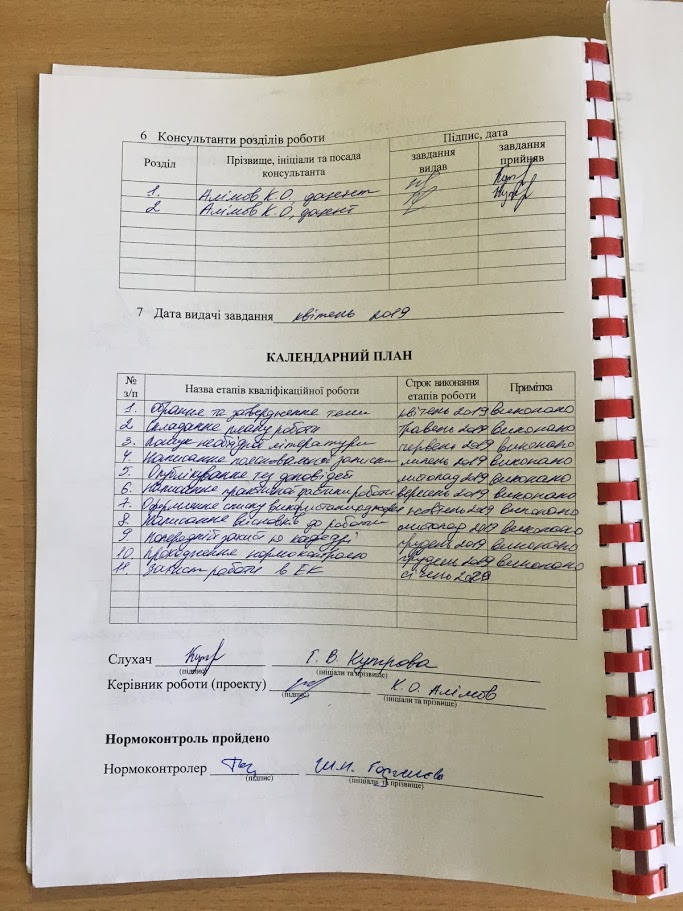 6 Консультанти розділів роботи
Розділ Прізвище, ініціали та посада консультанта Підпис, дата
завдання видав завдання прийняв
1. Алімов К.О., доцент
2 Алімов К.О., доцент
7 Дата видачі завдання квітень 2019
КАЛЕНДАРНИЙ ПЛАН
№ з/п Назва етапів кваліфікаційної роботи Строк виконання етапів роботи Примітка
1. Обрання та затвердження теми квітень 2019 виконано
2 Складання плану роботи травень 2019 виконано
3. Пошук необхідної літератури червень 2019 виконано
4. Написання пояснювальної записки липень 2019 виконано
5. Опублікування тез доповідей листопад 2019 виконано
6. Написання практичної частини роботи вересень 2019 виконано
7. Оформлення списку використаних джерел жовтень 2019 виконано
8. Написання висновків до роботи листопад 2019 виконано
9 Попередній захист на кафедрі грудень 2019 виконано
10. Проходження нормоконтролю грудень 2019 виконано
11. Захист роботи в ЕК січень 2020
Слухач Г. В. Купрова
(підпис) (ініціали та прізвище)
Керівник роботи (проекту) К. О. Алімов
(підпис) (ініціали та прізвище)
Нормоконтроль пройдено
Нормоконтролер
(підпис) (ініціали та прізвище)